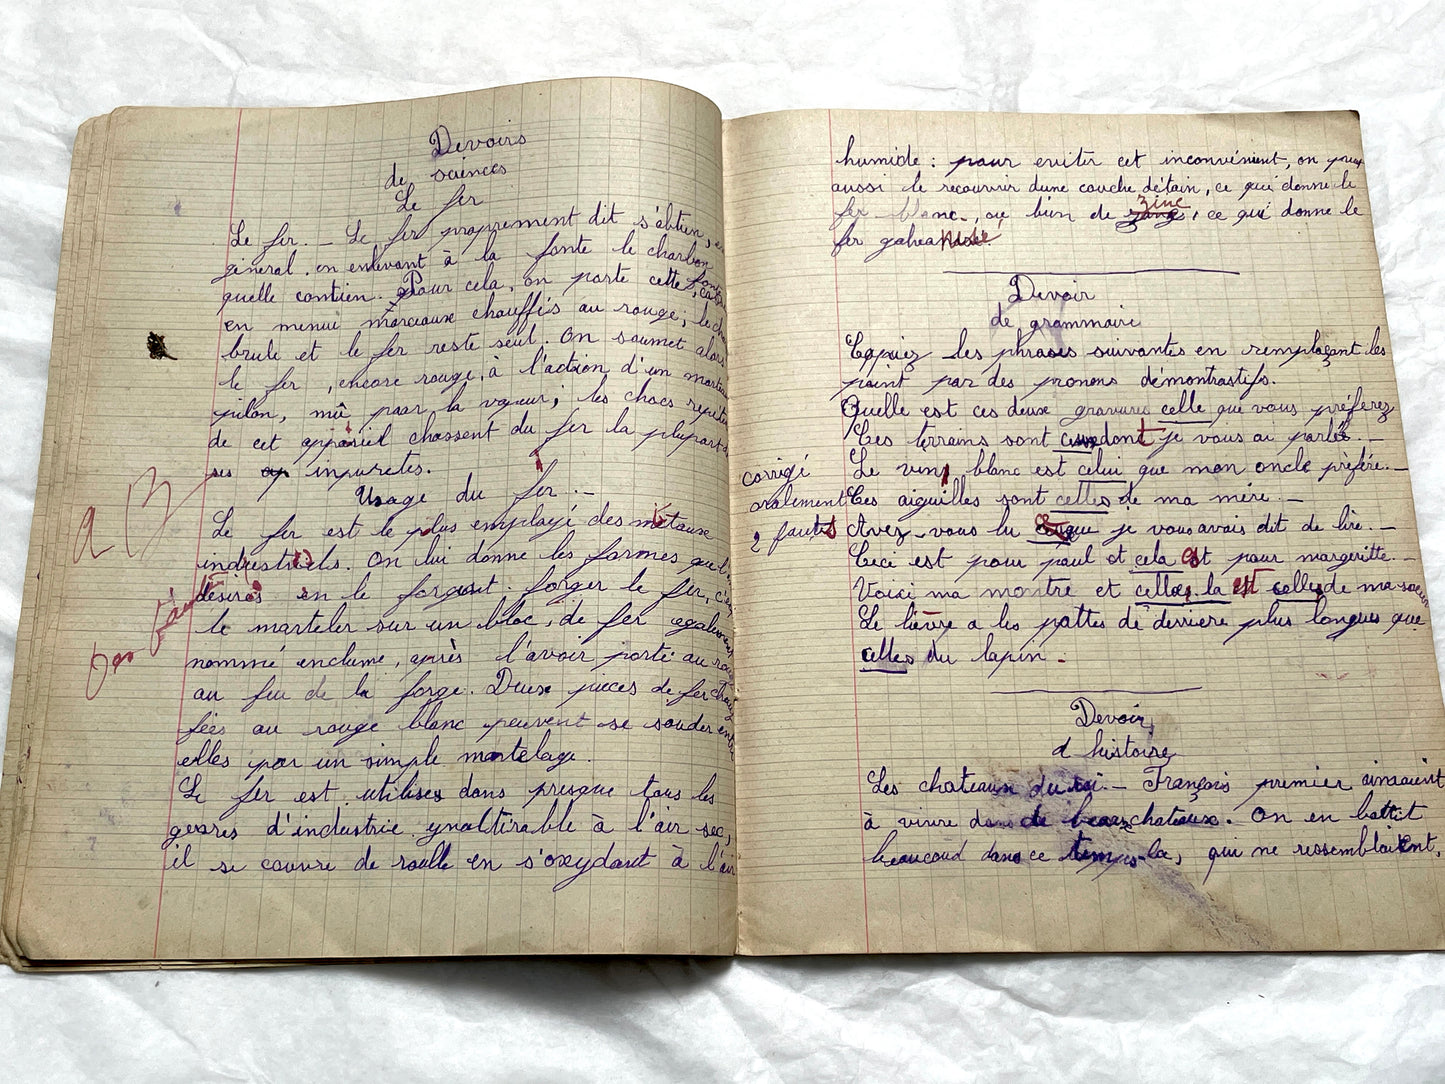 Devoirs
de sciences
Le fer
Le fer. _ Le fer proprement dit s'obtien, en
général, en enlevant à la fonte le charbon
quelle contien. Pour cela, on porte cette fonte, cas
en menui morceaux chauffés au rouge; le cha
brule et le fer reste seul. On soumet alors
le fer, encore rouge, à l'action d'un martea
pilon, mû paar la vapeur; les chocs repetés
de cet appareil chassent du fer la plupart d
ses inpuretés.
Usage du fer. _
Le fer est le plus employé des métaux
industriels. On lui donne les formes que l'
désirés en le forgent. forger le fer, c'est
le marteler sur un bloc, de fer egalement
nommé enclume, après l'avoir porté au rouge
au feu de la forge. Deux pièces de fer chauf
fées au rouge blanc peuvent se souder entre
elles par un simple martelage.
Le fer est utilises dans presque tous les
genres d'industrie ynaltirable à l'air sec,
il se couvre de roulle en s'oxydant à l'air
a B
pas
humide : pour eviter cet inconvénient, on peux
aussi le recouvrir dune couche détain, ce qui donne le
fer blanc, ou bien de zinc, ce qui donne le
fer galvanisé
Devoir
de grammaire
Copiez les phrases suivantes en remplaçant les
point par des pronons démontrastifs.
Quelle est ces deux gravures celle que vous préferez
Ces terrains sont ceux dont je vous ai parlé. _
Le vin blanc est celui que mon oncle préfère. _
Ces aiguilles sont celles de ma mère. _
Avez-vous lu ce que je vous avais dit de lire. _
Ceci est pour paul et cela est pour margeritte. _
Voici ma montre et celles la est celles de ma soeur
Le lièvre a les pattes de derriere plus longues que
celles du lapin _
corrigé
oralement
2 fautes
Devoir
d histoire
Les chateaux du roi. _ François premier aimaient
à vivre dans de beaux chateaux. On en battit
beaucoud dans ce temps-la, qui ne ressemblaient,